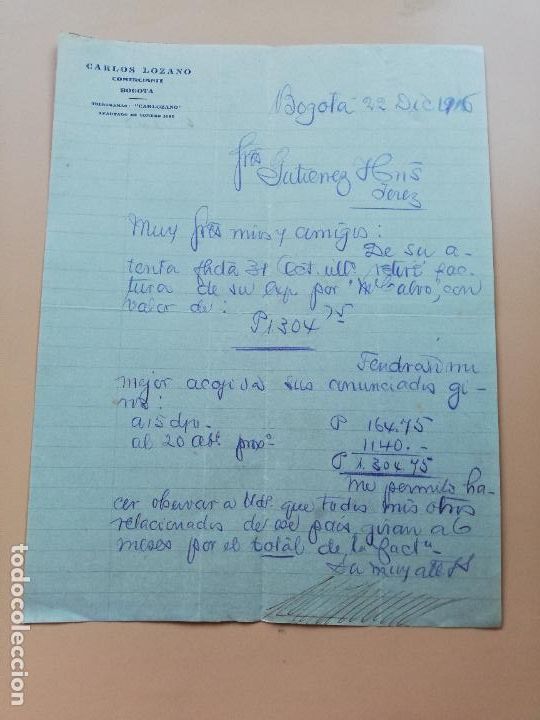 CARLOS LOZANO
COMERCIANTE
BOGOTA
TELEGRAMAS: "CARLOZANO"
APARTADO DE CORREO
Bogotá 22 Dic 1916
Sres
Gutierrez Hns
Jerez
Muy Sres mios y amigos:
De su a-
tenta fhda 31 Oct. ult. retiré fac-
tura de su exp por "Alvo", con
valor de:
P1.304 75
Tendrán mi
mejor acogida sus anunciados gi-
ros:
a 15 d/v. P 164.75
al 20 próxo 1140.-
P 1.304.75
Me permito ha-
cer observar a Uds. que todos mis otros
relacionados de ese pais, giran a 6
meses por el total de la facta.
Su muy atto S
todocoleccion